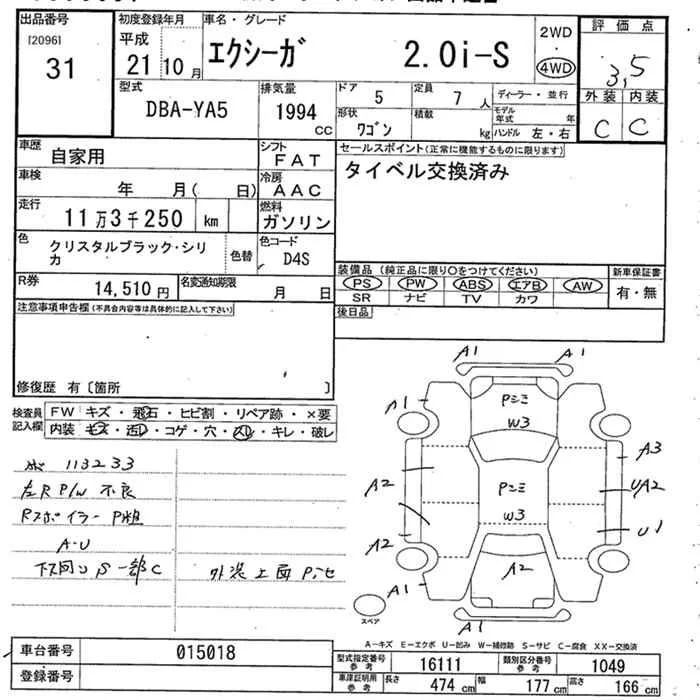 出品番号 初度登録年月 車名・グレード 2WD 評価点
[2096] 平成 エクシーガ 2.0i-S 4WD 3,5
31 21年10月
外装 内装
C C
型式 排気量 ドア 定員 ディーラー・並行
DBA-YA5 1994cc 5 7人 モデル年式 年
形状 積載
ワゴン kg ハンドル 左・右
車歴 シフト セールスポイント(正常に機能するものに限ります)
自家用 FAT タイベル交換済み
車検 冷房
年 月( 日) AAC
走行 燃料
11万3千250 km ガソリン
色 色コード
クリスタルブラック・シリカ 色替 D4S
装備品(純正品に限り○をつけてください) 新車保証書
R券 名変通知期限 PS PW ABS エアB AW 有・無
14,510円 月 日 SR ナビ TV カワ
注意事項申告欄(不具合内容等は具体的に記入して下さい) 後日品
修復歴 有〔箇所 〕
検査員記入欄 FW キズ・飛石・ヒビ割・リペア跡・×要
内装 キズ・汚レ・コゲ・穴・スレ・キレ・破レ
113233
左R P/W 不良
Rスポイラー P粗
A-U
下回りS一部C 外装上面
A1 A1
A1 Pシミ
W3
A3
A2 Pシミ UA2
W3
U1
A2 A2
A1
A1
スペア
A-キズ E-エクボ U-凹み W-補修跡 S-サビ C-腐食 XX-交換済
車台番号 015018
登録番号
型式指定番号参考 16111 類別区分番号参考 1049
車庫証明用参考 長さ 474cm 幅 177cm 高さ 166cm